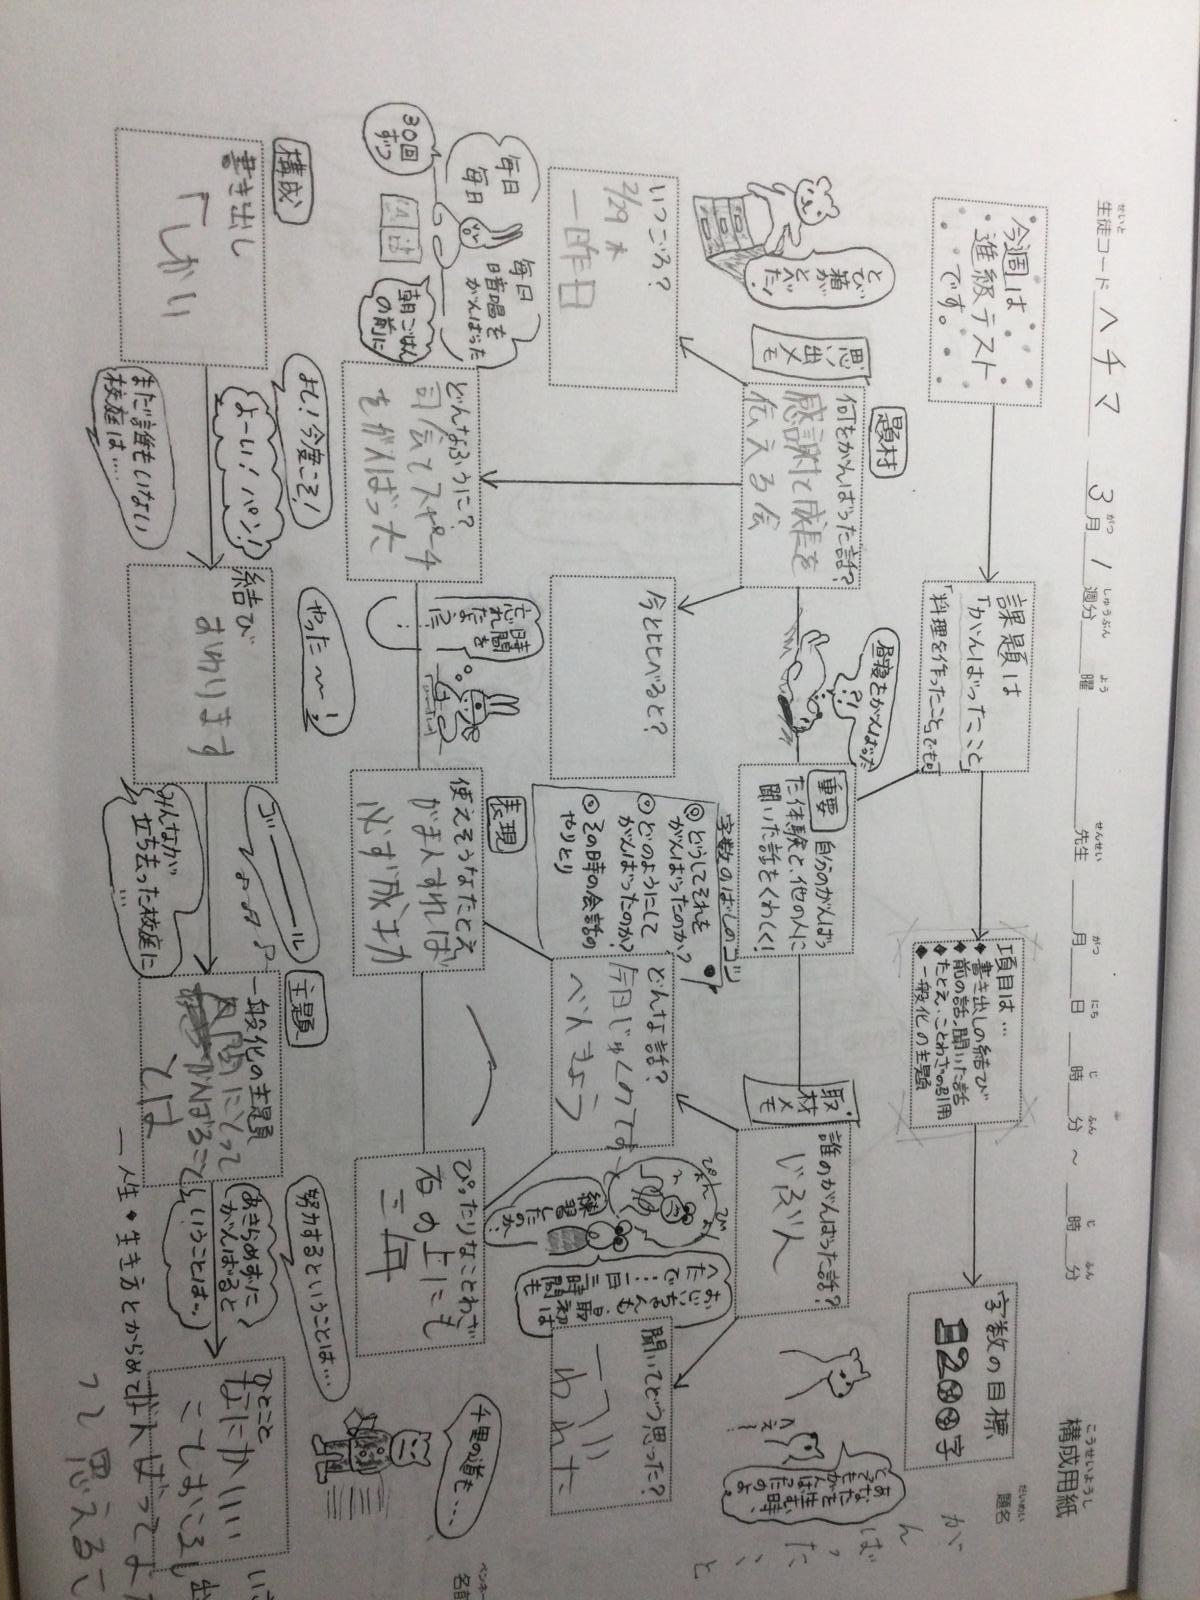 構成用紙
生徒コード ヘチマ 3月1週分 曜 先生 月 日 時 分 ～ 時 分
せいと がつ しゅうぶん よう せんせい がつ にち じ ふん じ ふん
こうせいようし
だいめい
題名
がんばったこと
今週は
進級テスト
です。
課題は
「がんばったこと」
「料理を作ったこと」でも可
項目は…
◆書き出しの結び
◆前の話、聞いた話
◆たとえ、ことわざの引用
◆一般化の主題
字数の目標
1200字
題材
思い出メモ
何をがんばった話?
感謝と成長を
伝える会
とび箱が
とべた!
昼寝をがんばった
?!
重要
自分のがんばっ
た体験と、他の人に
聞いた話をくわしく!
取材メモ
誰のがんばった話?
じぶん
へえー!
あなたを
産む時、
とても
がんばったのよ。
いつごろ?
2/29 木
一昨日
今と比べると?
字数のばしのコツ
◎どうしてそれを
がんばったのか?
◎どのようにして
がんばったのか?
◎その時の会話の
やりとり
どんな話?
今日じゅくのてすと
べんきょう
ぴょん
ぴょん
練習
したのか?
おじいちゃんも、最初は
へたで…一日三時間も
聞いてどう思った?
表現
毎日
毎日
毎日
暗唱を
がんばった
30回
ずつ
朝ごはん
の前に
どんなふうに?
司会でスピーチ
をがんばった
時間を
忘れ
使えそうなたとえ
がまんすれば
必ず成功
ぴったりなことわざ
石の上にも
三年
千里の道も…
構成
書き出し
「しかい
よし!今度こそ!
よーい!パン!
まだ誰もいない
校庭は…
結び
おわります
やった～!
ゴーール
みんなが
立ち去った校庭に
…
主題
一般化の主題
人間にとって
がんばること
とは
努力するということは…
あきらめずに
がんばると
いうことは…
人生・生き方とからめて
ひとこと
なにかいい
がんばってよ
って思えるこ
ペンネーム